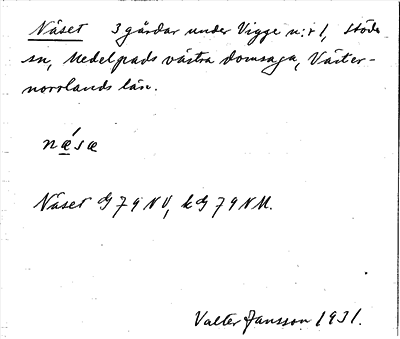 Näset 3 gårdar under Vigge n:r 1, Stöde
sn, Medelpads västra domsaga, Väster-
norrlands län.
næ´sæ
Näset G 79 NV, kG 79 NM.
Valter Jansson 1931.